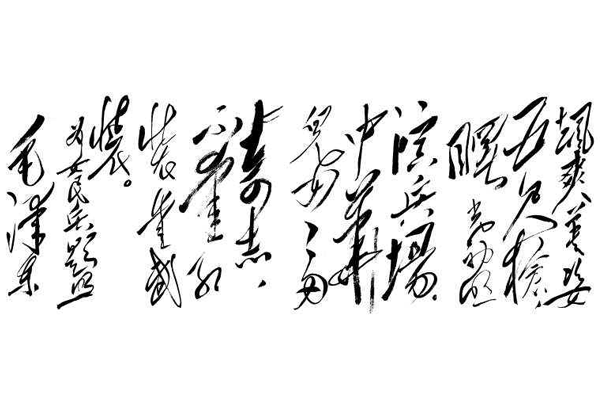 颯爽英姿
五尺槍，
曙光初照
演兵場。
中華
兒女多
奇志，
不爱红
装爱武
装。
为女民兵题照
毛澤东